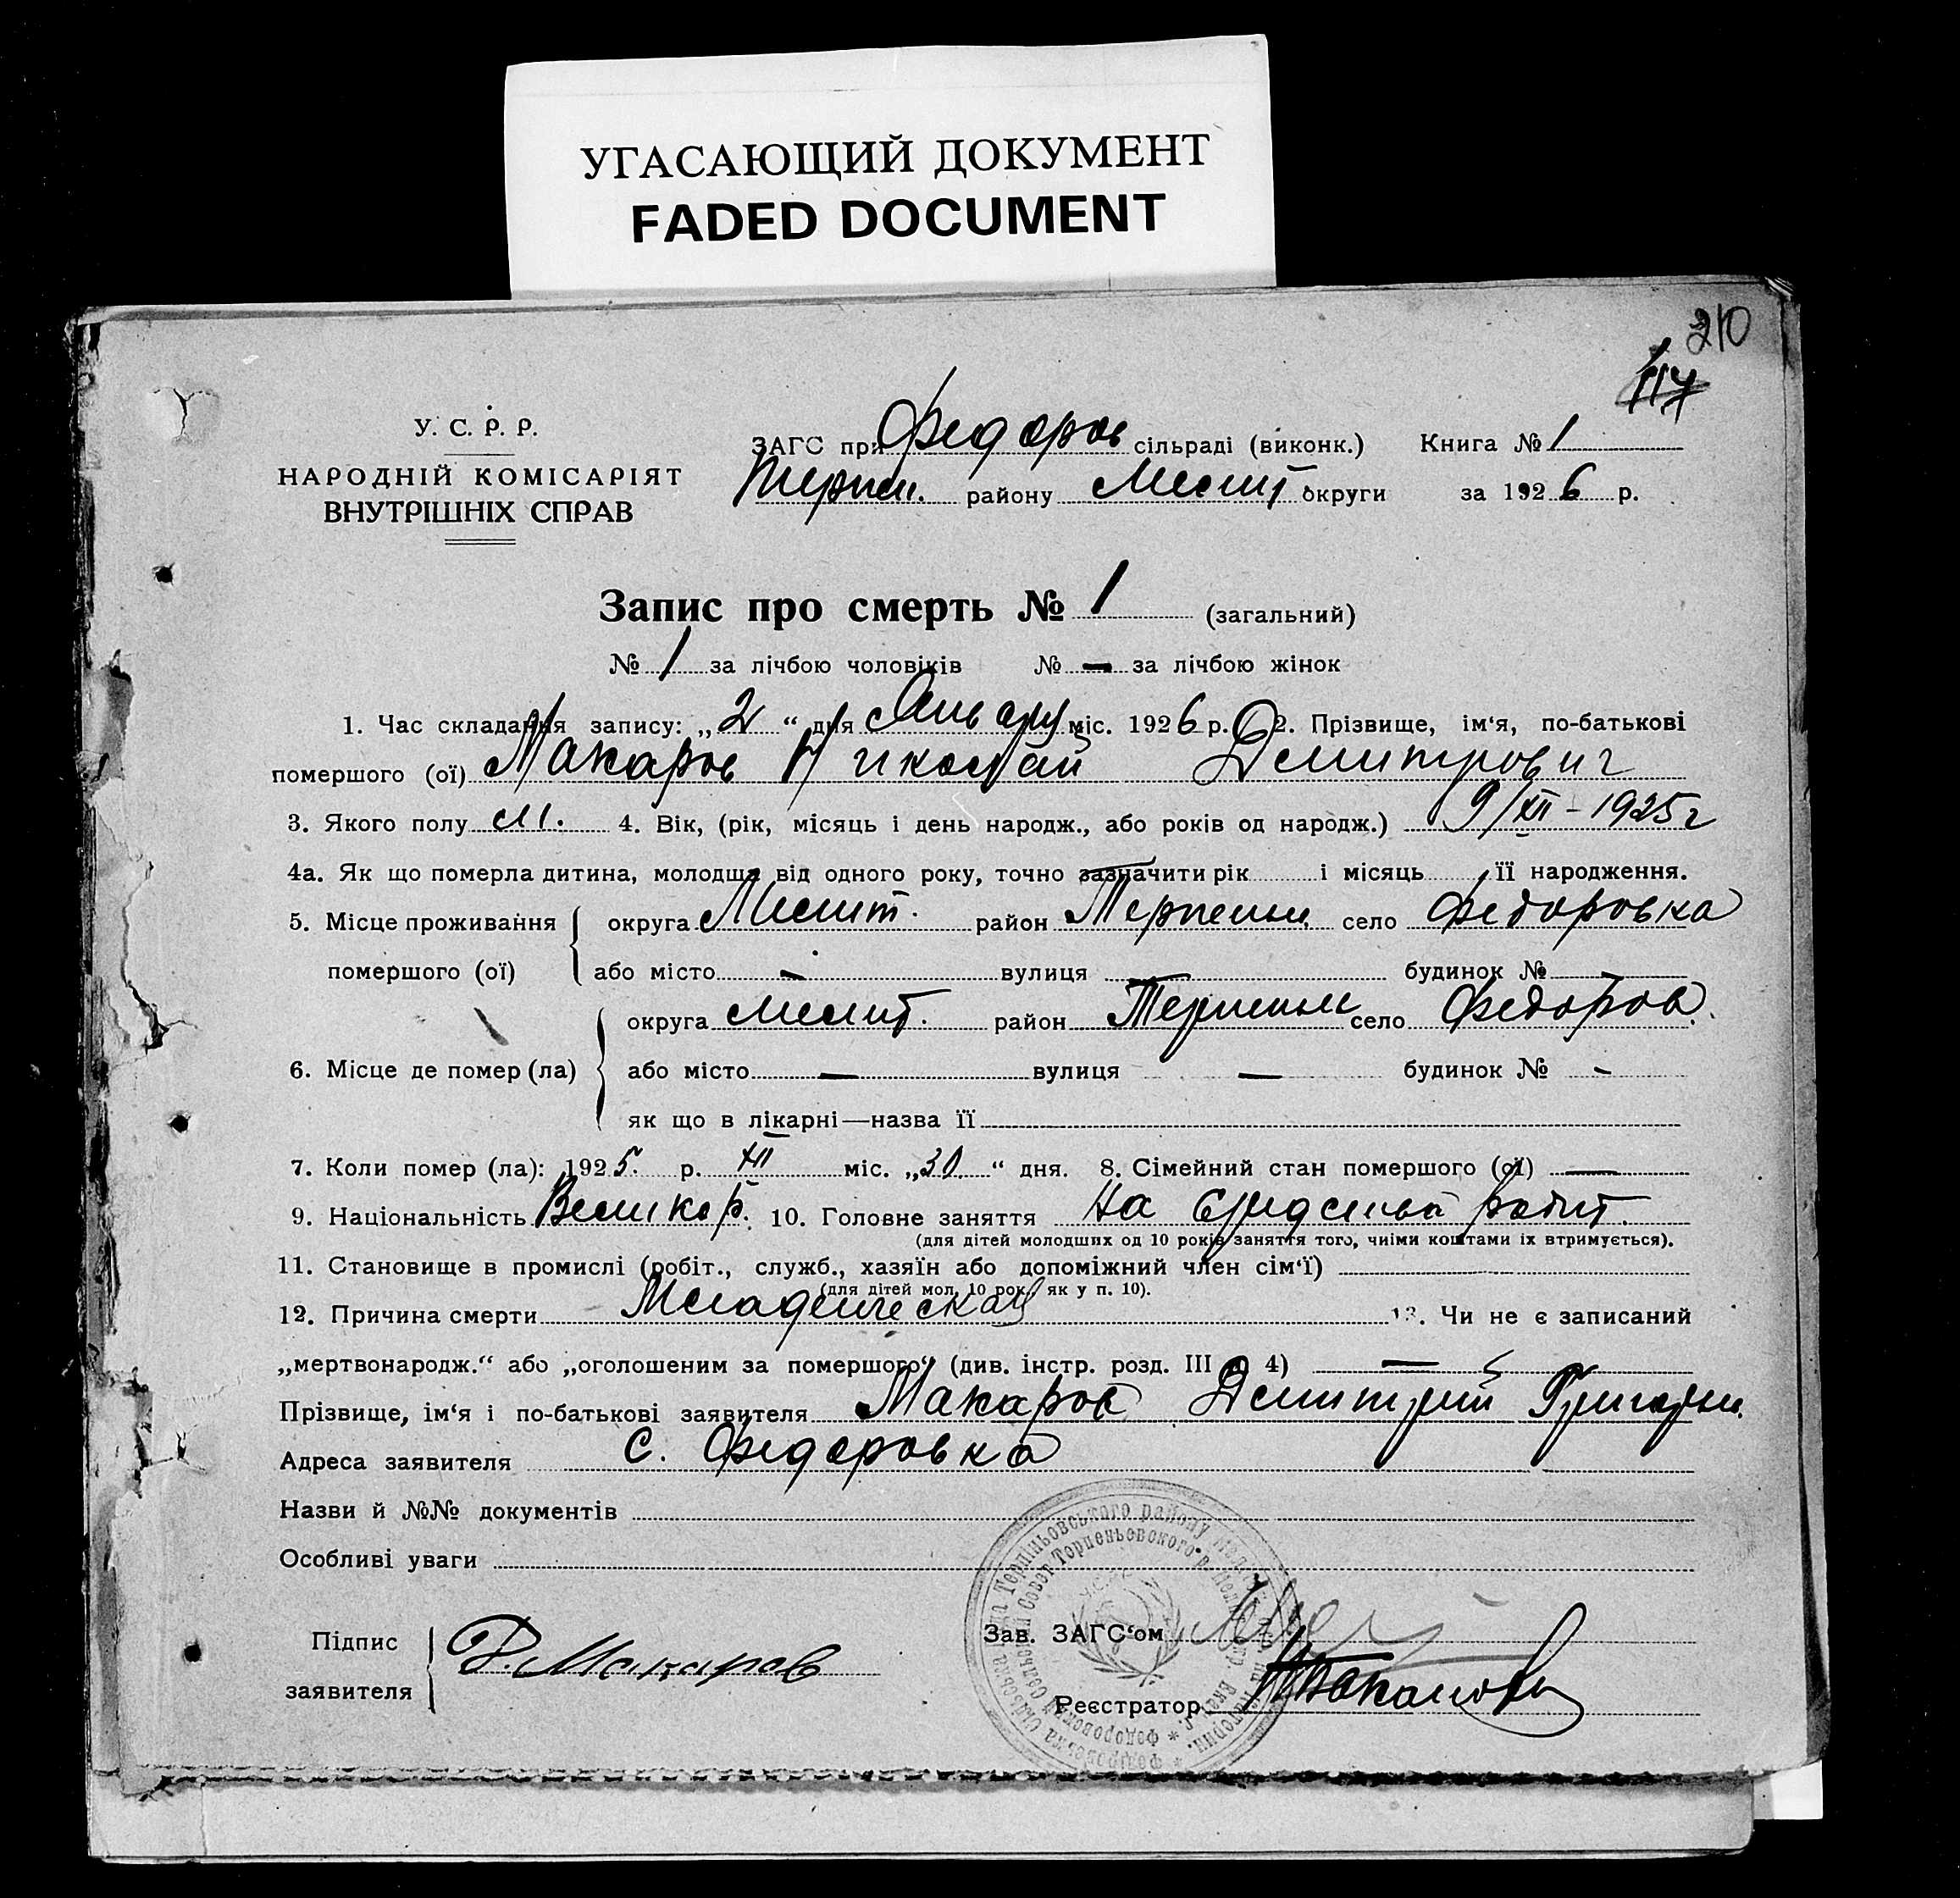 УГАСАЮЩИЙ ДОКУМЕНТ
FADED DOCUMENT
210
117
У. С. Р. Р.
НАРОДНІЙ КОМІСАРІЯТ
ВНУТРІШНІХ СПРАВ
ЗАГС при Федоров сільраді (виконк.) Книга № 1
Терпен. району Мелит округи за 1926 р.
Запис про смерть № 1 (загальний)
№ 1 за лічбою чоловіків № — за лічбою жінок
1. Час складання запису: „2“ дня Январу міс. 1926 р. 2. Прізвище, ім‘я, по-батькові
помершого (ої) Макаров Николай Дмитрович
3. Якого полу м. 4. Вік, (рік, місяць і день народж., або років од народж.) 9/XII - 1925 г
4а. Як що померла дитина, молодша від одного року, точно зазначити рік і місяць її народження.
5. Місце проживання округа Мелит. район Терпеньи село Федоровка
помершого (ої) або місто - вулиця — будинок №
округа Мелит. район Терпеньи село Федоров.
6. Місце де помер (ла) або місто — вулиця — будинок № -
як що в лікарні—назва її
7. Коли помер (ла): 1925. р. XII міс. „30“ дня. 8. Сімейний стан помершого (ої) —
9. Національність Великор. 10. Головне заняття На средства родит.
(для дітей молодших од 10 років заняття того, чиїми коштами їх втримується).
11. Становище в промислі (робіт., служб., хазяїн або допоміжний член сім‘ї)
(для дітей мол. 10 рок. як у п. 10).
12. Причина смерти Младенческая 13. Чи не є записаний
„мертвонародж.“ або „оголошеним за помершого“ (див. інстр. розд. III 4) —
Прізвище, ім‘я і по-батькові заявителя Макаров Дмитрий Григорьи.
Адреса заявителя с. Федоровка
Назви й №№ документів
Особливі уваги
Підпис
заявителя Д. Макаров
Зав. ЗАГС‘ом
Реєстратор